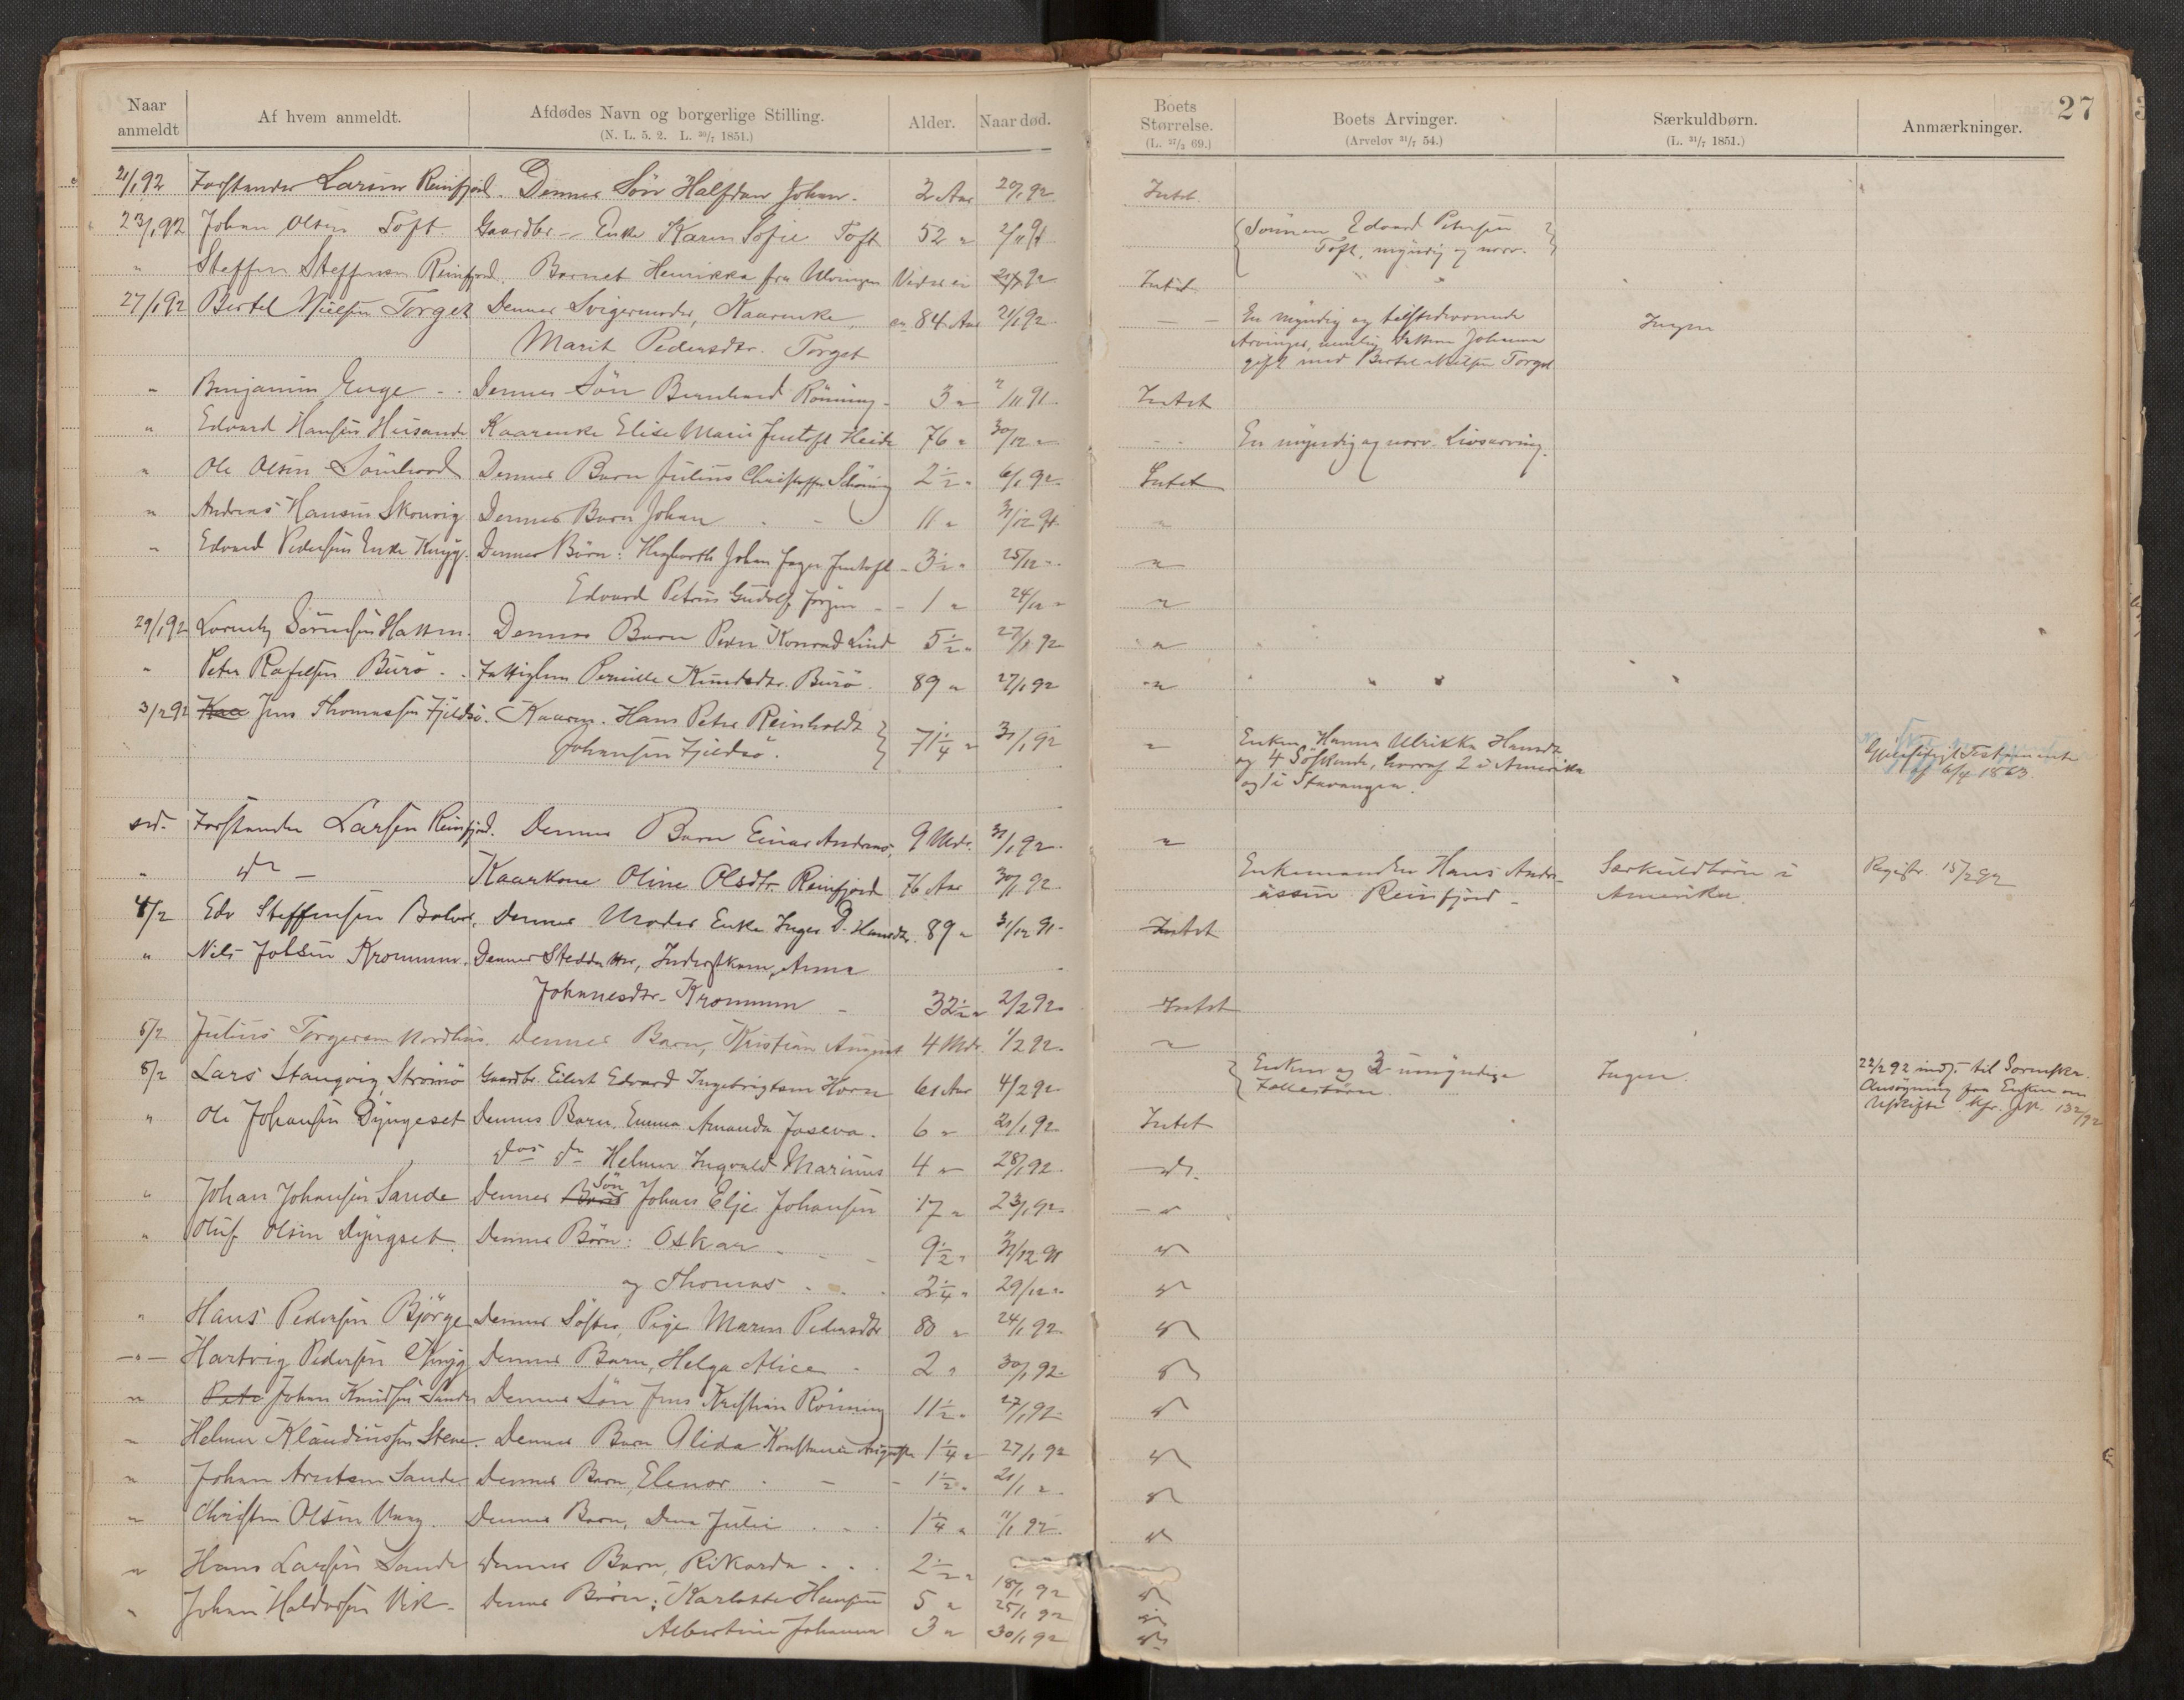 Naar anmeldt
Af hvem anmeldt.
Afdødes Navn og borgerlige Stilling.
(N. L. 5. 2. L. 30/7 1851.)
Alder.
Naar død.
Boets Størrelse.
(L. 27/3 69.)
Boets Arvinger.
(Arvelov 31/7 54.)
Særkuldbørn.
(L. 31/7 1851.)
Anmærkninger.
27
21/1 92 Forstander Larsen Reinfjord. Dennes Søn Halfdan Johan. 2 Aar 20/1 92 Intet
23/1 92 Johan Olsen Toft Gaardbr. Enke Karen Sofie Toft 52 " 2/11 91 Sønnen Edvard Petersen
Toft, myndig og nærv.
" Steffen Steffensen Reinfjord. Barnet Henrikka fra Ulvingen 92 Intet
27/1 92 Bertel Nielsen Torget Dennes Svigermoder, Kaarenke 84 Aar 21/1 92 En myndig og tilstedeværende Ingen
Marit Pedersdtr. Torget Arvinger, nemlig Datteren Johanna
gift med Bertel Nielsen Torget
" Benjamin Enge Dennes Søn Bernhard Rönning 3 " /11 91 Intet
" Edvard Hansen Husande Kaarenke Elise Marie Heide 76 " 30/12 " En myndig og nærv. Livsarving.
" Ole Olsen Dennes Barn Julius Christoffer Schöning 2 1/2 " 6/1 92 Intet
" Andreas Hansen Skonvig Dennes Barn Johan 11 " 31/12 91 "
" Edvard Pedersens Enke Dennes Børn: Johan 3 1/2 " 25/12 " "
Edvard Petrus 1 " 24/12 " "
29/1 92 Sörensen Hatten. Dennes Barn Peder Konrad Lind 5 1/2 " 27/1 92 "
" Peter Rafelsen Burö Fattiglem Pernille Knudsdtr. Burö 89 " 27/1 92 "
3/2 92 Jens Thomassen Fjeldsö. Kaarm. Hans Peter Reinholdt 71 1/4 " 31/1 92 " Enken Hanna Ulrikka Hansdtr. Gjensidigt Testamente
Johansen Fjeldsö. og 4 Söskende, hvoraf 2 i Amerika af 6/4 1863
og 1 i Stavanger.
sd. Forstander Larsen Reinfjord. Dennes Barn Einar Andreas, 9 Mdr. 31/1 92 "
" do Kaarkone Oline Olsdtr. Reinfjord 76 Aar 30/1 92 Enkemanden Hans Andre- Særkuldbørn i Registr. 15/2 92
assen Reinfjord Amerika.
4/2 Edv Steffensen Dennes Moder Enke Inger D. Hansdtr. 89 " 31/12 91 Intet
" Nils Jobsen Krommen. Dennes Steddatter, Inderstkone, Anna
Johannesdtr. Krommen 32 1/2 " 2/2 92 Intet
5/2 Julius Torgersen Nordhus. Dennes Barn, Kristian August 4 Mdr. 1/2 92 "
8/2 Lars Stangvig Strömö Gaardbr. Eilert Edvard Ingebrigtsen Horn 61 Aar 4/2 92 Enken og 3 umyndige Ingen 22/2 92 indj. til Sorenskr.
Fællesbørn. Ansögning fra Enken om
" Ole Johansen Dyngeset Dennes Barn, Emma Amanda Joseva. 6 " 21/1 92 Intet
do Helmer Ingvald Marinus 4 " 28/1 92 do.
" Johan Johansen Sande Dennes Søn Johan Elje Johansen 17 " 23/1 92
" Oluf Olsen Dyngset Dennes Børn: Oskar 9 1/2 " 31/12 91
og Thomas 2 1/4 " 29/12 "
" Hans Pedersen Bjørge Dennes Søster, Pige Maren Pedersdtr 80 " 24/1 92
" Hartvig Pedersen Dennes Barn, Helga Alice 2 " 30/1 92
" Johan Knudsen Sande Dennes Søn Jens Kristian Rönning 11 1/2 " 27/1 92
" Helmer Klaudiussen Stene. Dennes Barn Alida 1 1/4 " 27/1 92
" Johan Arntsen Sande Dennes Barn, Elenor 1 1/2 " 21/1 "
" Christen Olsen Dennes Barn, Dina Julie 1 1/4 " 11/1 92
" Hans Larsen Sande Dennes Barn, Rikarda 2 1/2 " 18/1 92
" Johan Haldorsen Vik Dennes Børn: Karlotte Hansine 5 " 25/1 92
Albertine Johanna 3 " 30/1 92